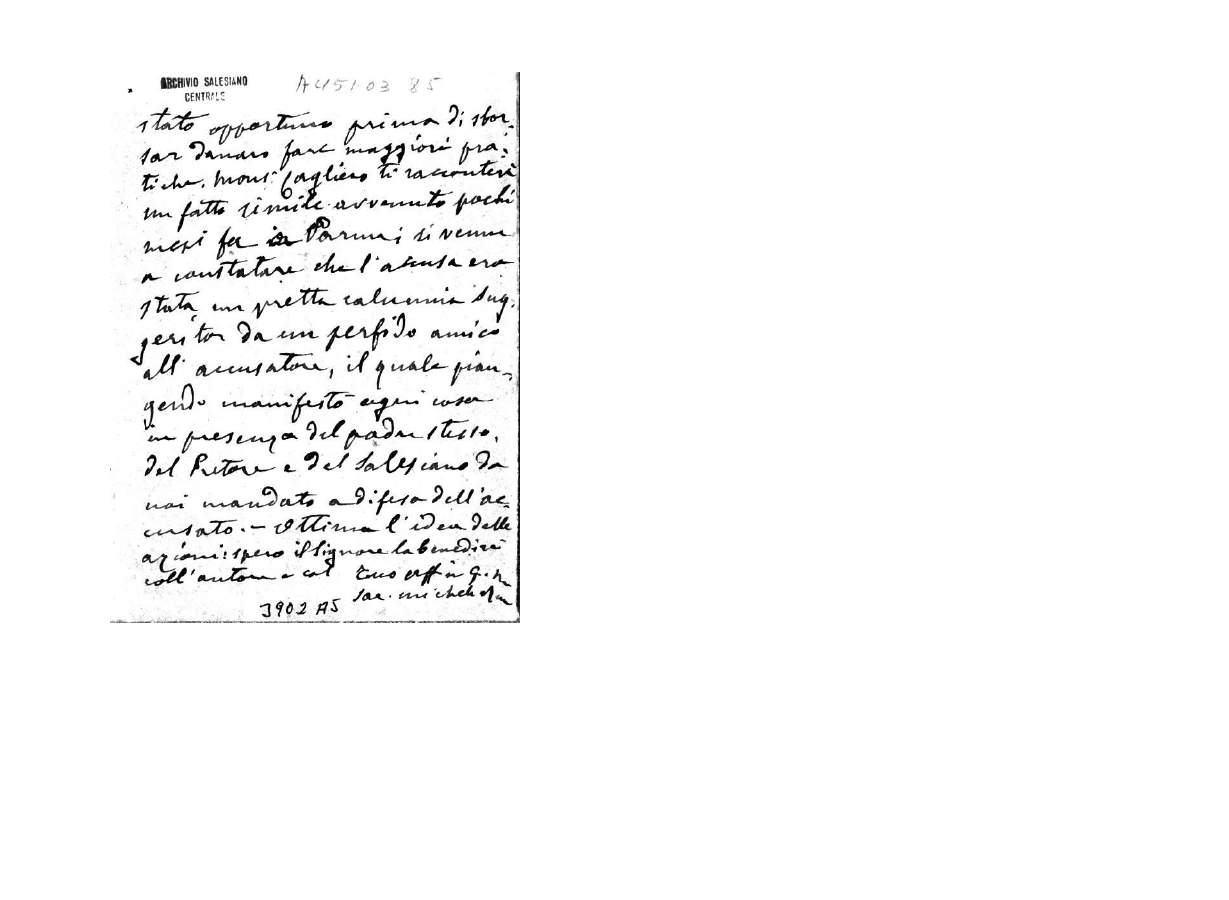 ARCHIVIO SALESIANO
CENTRALE
A451.03 85
stato opportuno prima di sbor-
sar danaro fare maggiori pra-
tiche. Mons. Cagliero ti racconterà
un fatto simile avvenuto pochi
mesi fa in Parma; si venne
a constatare che l'accusa era
stata un pretta calunnia sug-
gerita da un perfido amico
all'accusatore, il quale pian-
gendo manifestò ogni cosa
in presenza del padre stesso,
del Pretore e del Salesiano da
noi mandato a difesa dell'ac-
cusato. - Ottima l'idea delle
azioni: spero il Signore la benedirà
coll'autore e col Tuo aff in G. e M
Sac. Michele Rua
3902 A5